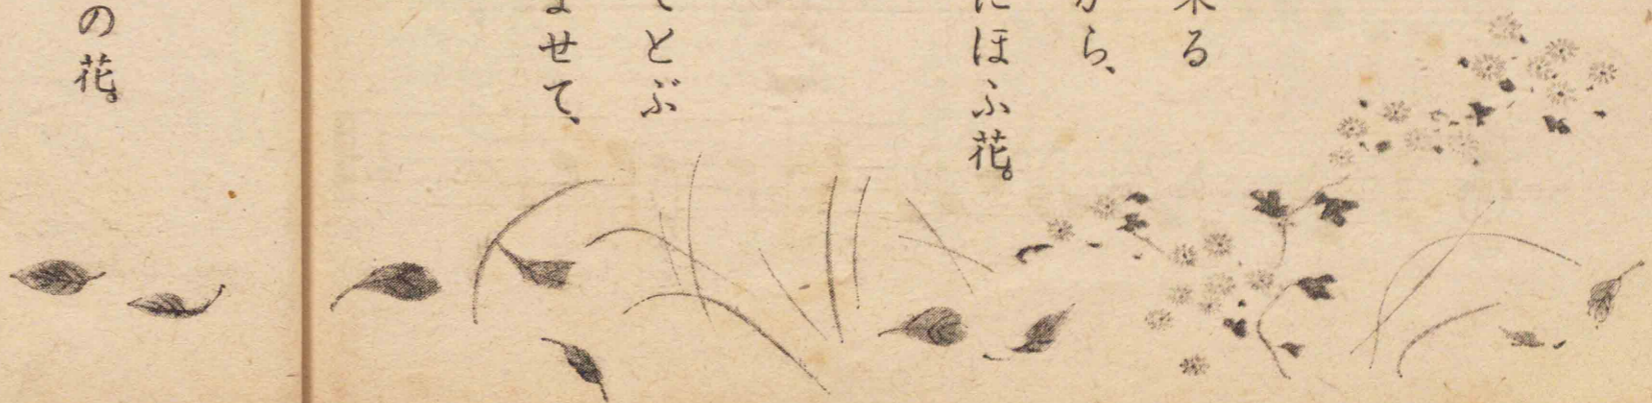 来る
から、
にほふ花。
てとぶ
ませて、
の花。